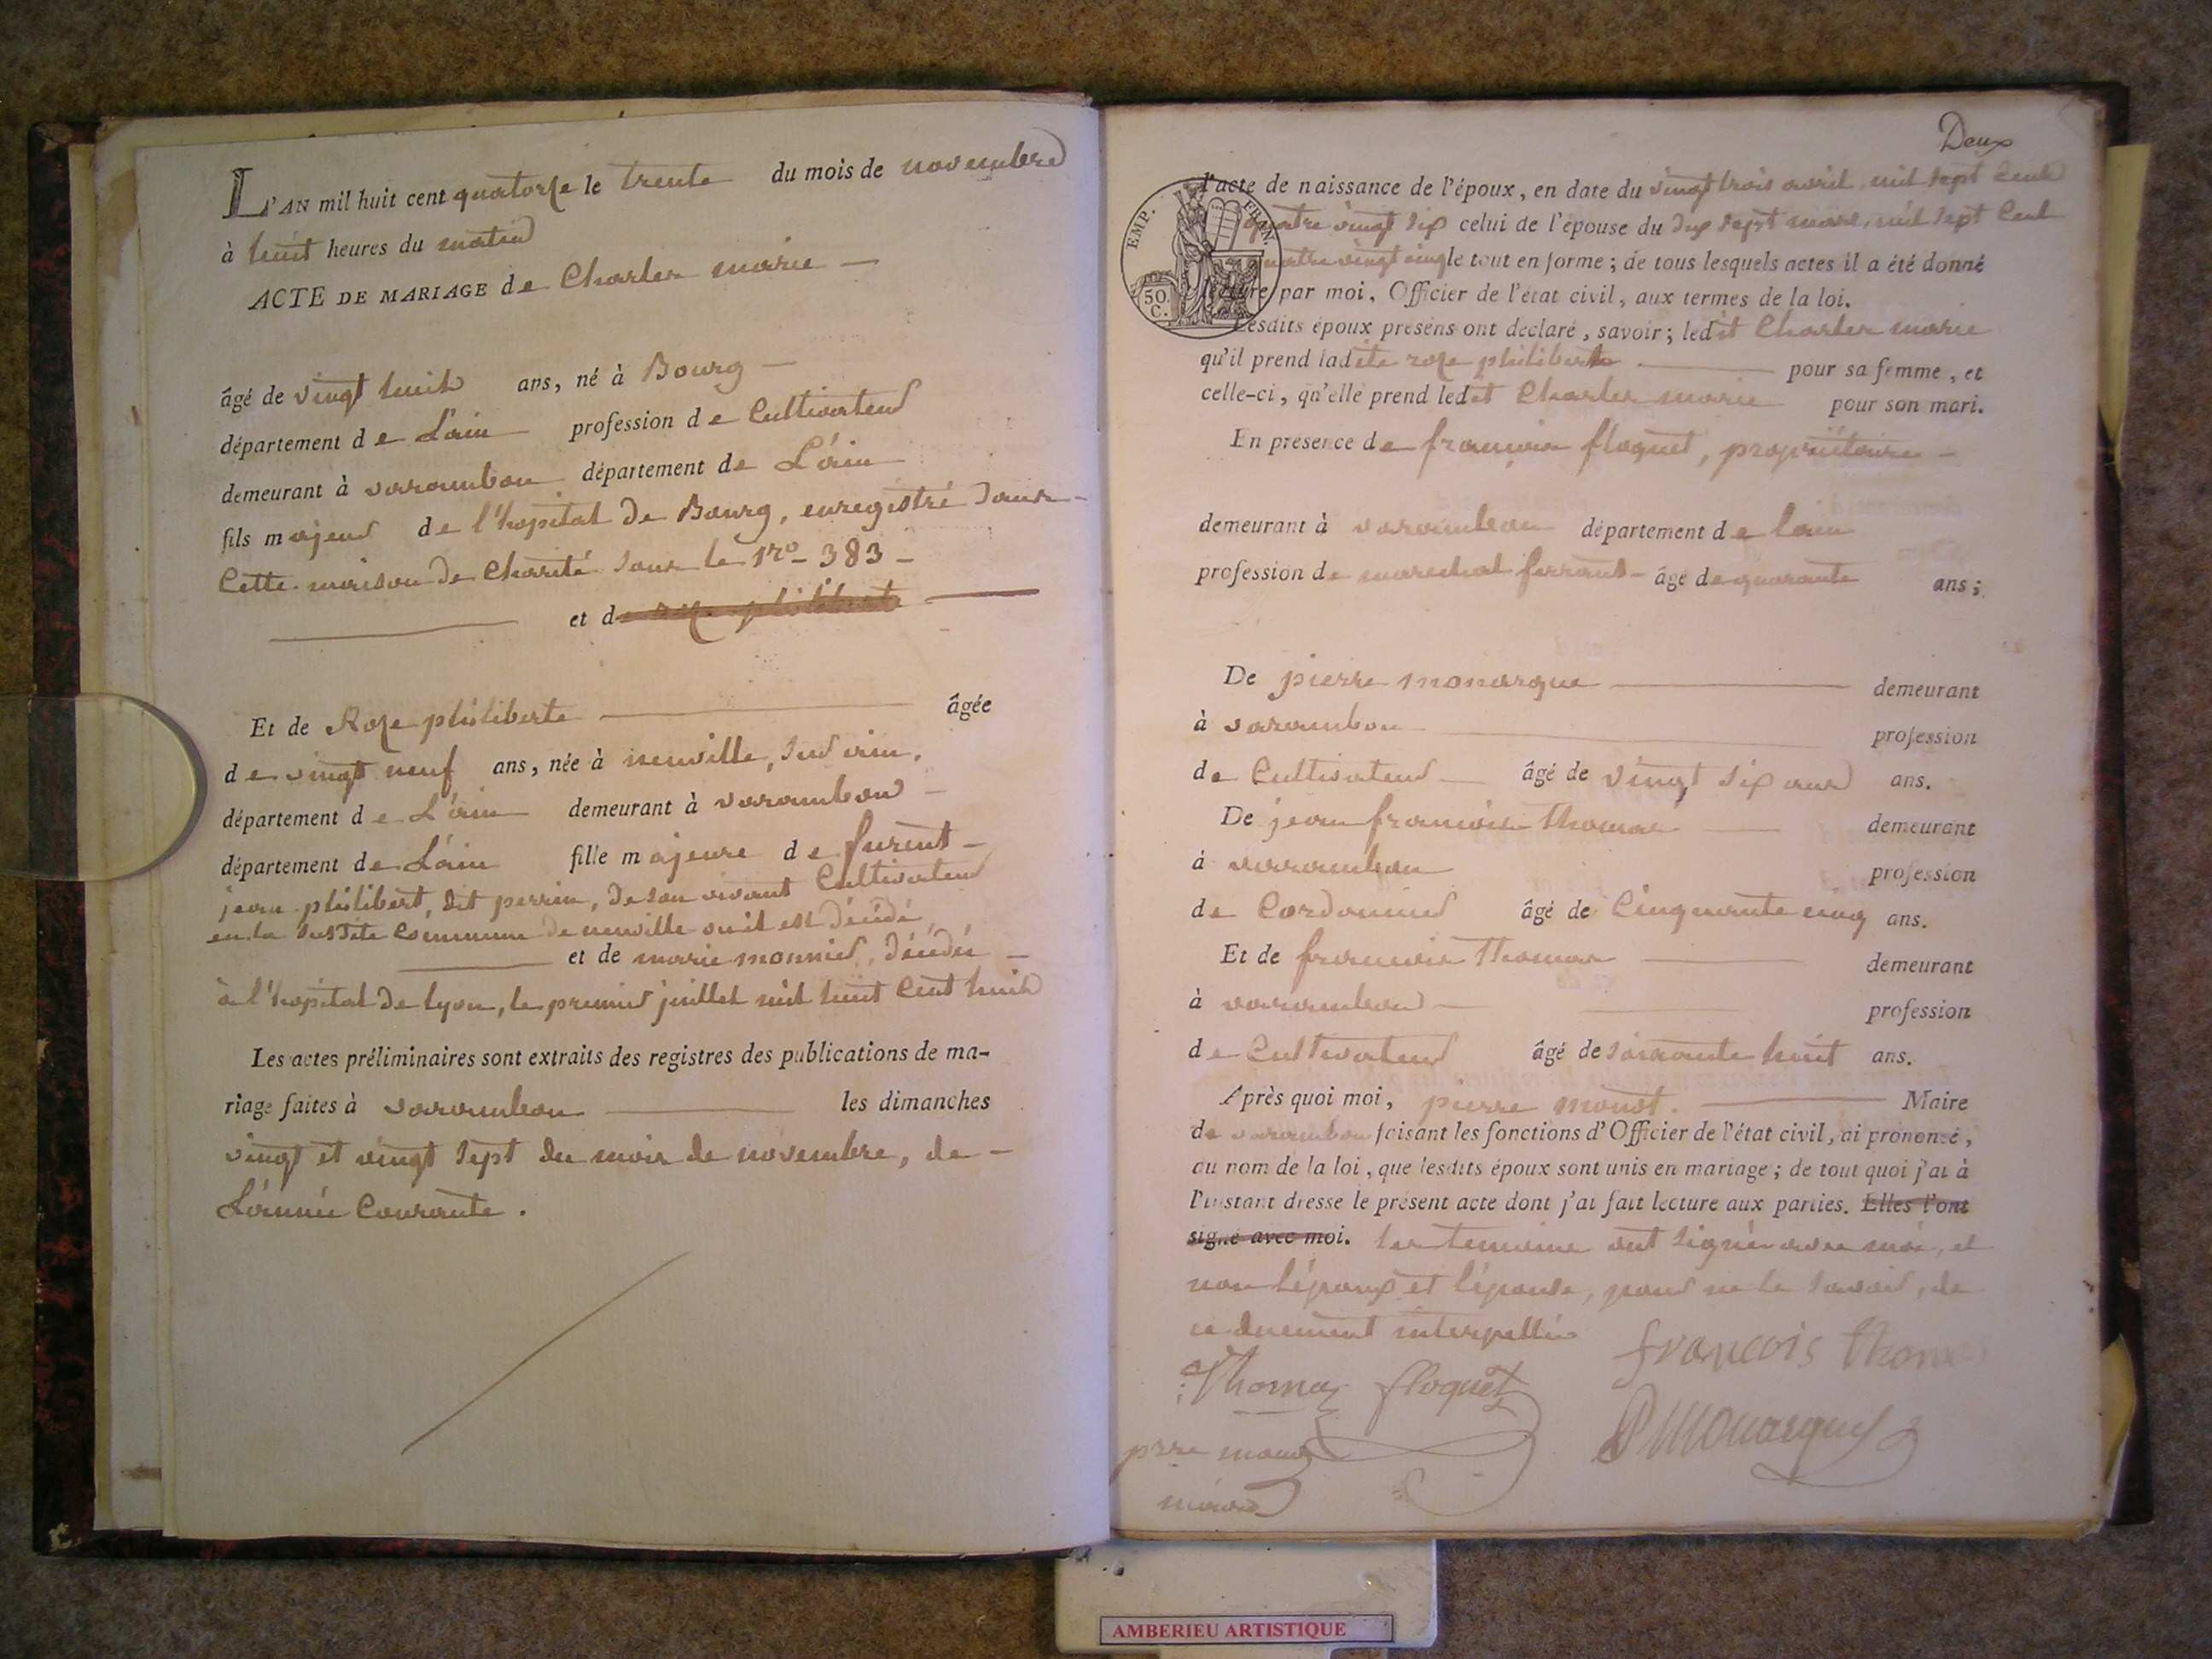 L'AN mil huit cent quatorze le trente du mois de novembre
à huit heures du matin
ACTE DE MARIAGE de Charles marie
âgé de vingt huit ans, né à Bourg
département de L'ain profession de Cultivateur
demeurant à varambon département de L'ain
fils majeur de l'hopital de Bourg, enregistré dans
Cette maison de Charité sous le Nro 383
et de roze philiberte
Et de Roze philiberte âgée
de vingt neuf ans, née à neuville, sur ain,
département de L'ain demeurant à varambon
département de L'ain fille majeure de furent
jean philibert, dit perrin, de son vivant Cultivateur
en la susdite Commune de neuville ou il est décédé
et de marie monnier, décédée
à l'hopital de lyon, le premier juillet mil huit Cent huit
Les actes préliminaires sont extraits des registres des publications de ma-
riage faites à varambon les dimanches
vingt et vingt sept du mois de novembre, de
L'année Courante.
Deux
EMP. FRAN.
50. C.
l'acte de naissance de l'époux, en date du vingt trois avril, mil sept Cent
quatre vingt six celui de l'épouse du dix sept mars, mil sept Cent
quatre vingt cinq le tout en forme; de tous lesquels actes il a été donné
lecture par moi, Officier de l'état civil, aux termes de la loi.
Lesdits époux présens ont déclaré, savoir; ledit Charles marie
qu'il prend ladite roze philiberte pour sa femme, et
celle-ci, qu'elle prend ledit Charles marie pour son mari.
En présence de françois floquet, propriétaire
demeurant à varambon département de lain
profession de marechal ferrant âgé de quarante ans;
De pierre monarque demeurant
à varambon profession
de Cultivateur âgé de vingt six ans ans.
De jean françois Thomas demeurant
à varambon profession
de Cordonnier âgé de Cinquante cinq ans.
Et de françois Thomas demeurant
à varambon profession
de Cultivateur âgé de soixante huit ans.
Après quoi moi, pierre monot. Maire
de varambon faisant les fonctions d'Officier de l'état civil, ai prononcé,
au nom de la loi, que lesdits époux sont unis en mariage; de tout quoi j'ai à
l'instant dressé le présent acte dont j'ai fait lecture aux parties. Elles l'ont
signé avec moi. les temoins ont signé avec moi, et
non l'époux et l'épouse, pour ne le savoir, de
ce duement interpellés
françois thomas
Thomas floquet
P Monarque
prre monot
maire
AMBERIEU ARTISTIQUE